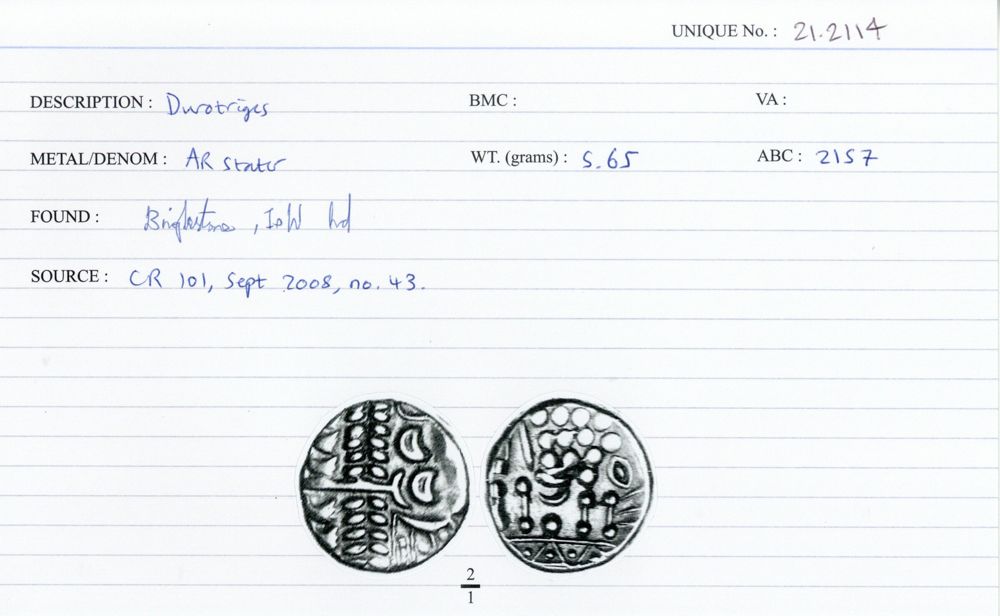 UNIQUE No. : 21.2114
DESCRIPTION : Durotriges BMC : VA :
METAL/DENOM : AR stater WT. (grams) : 5.65 ABC : 2157
FOUND : Brighstone, IoW hd
SOURCE : CR 101, Sept 2008, no. 43.
2
1